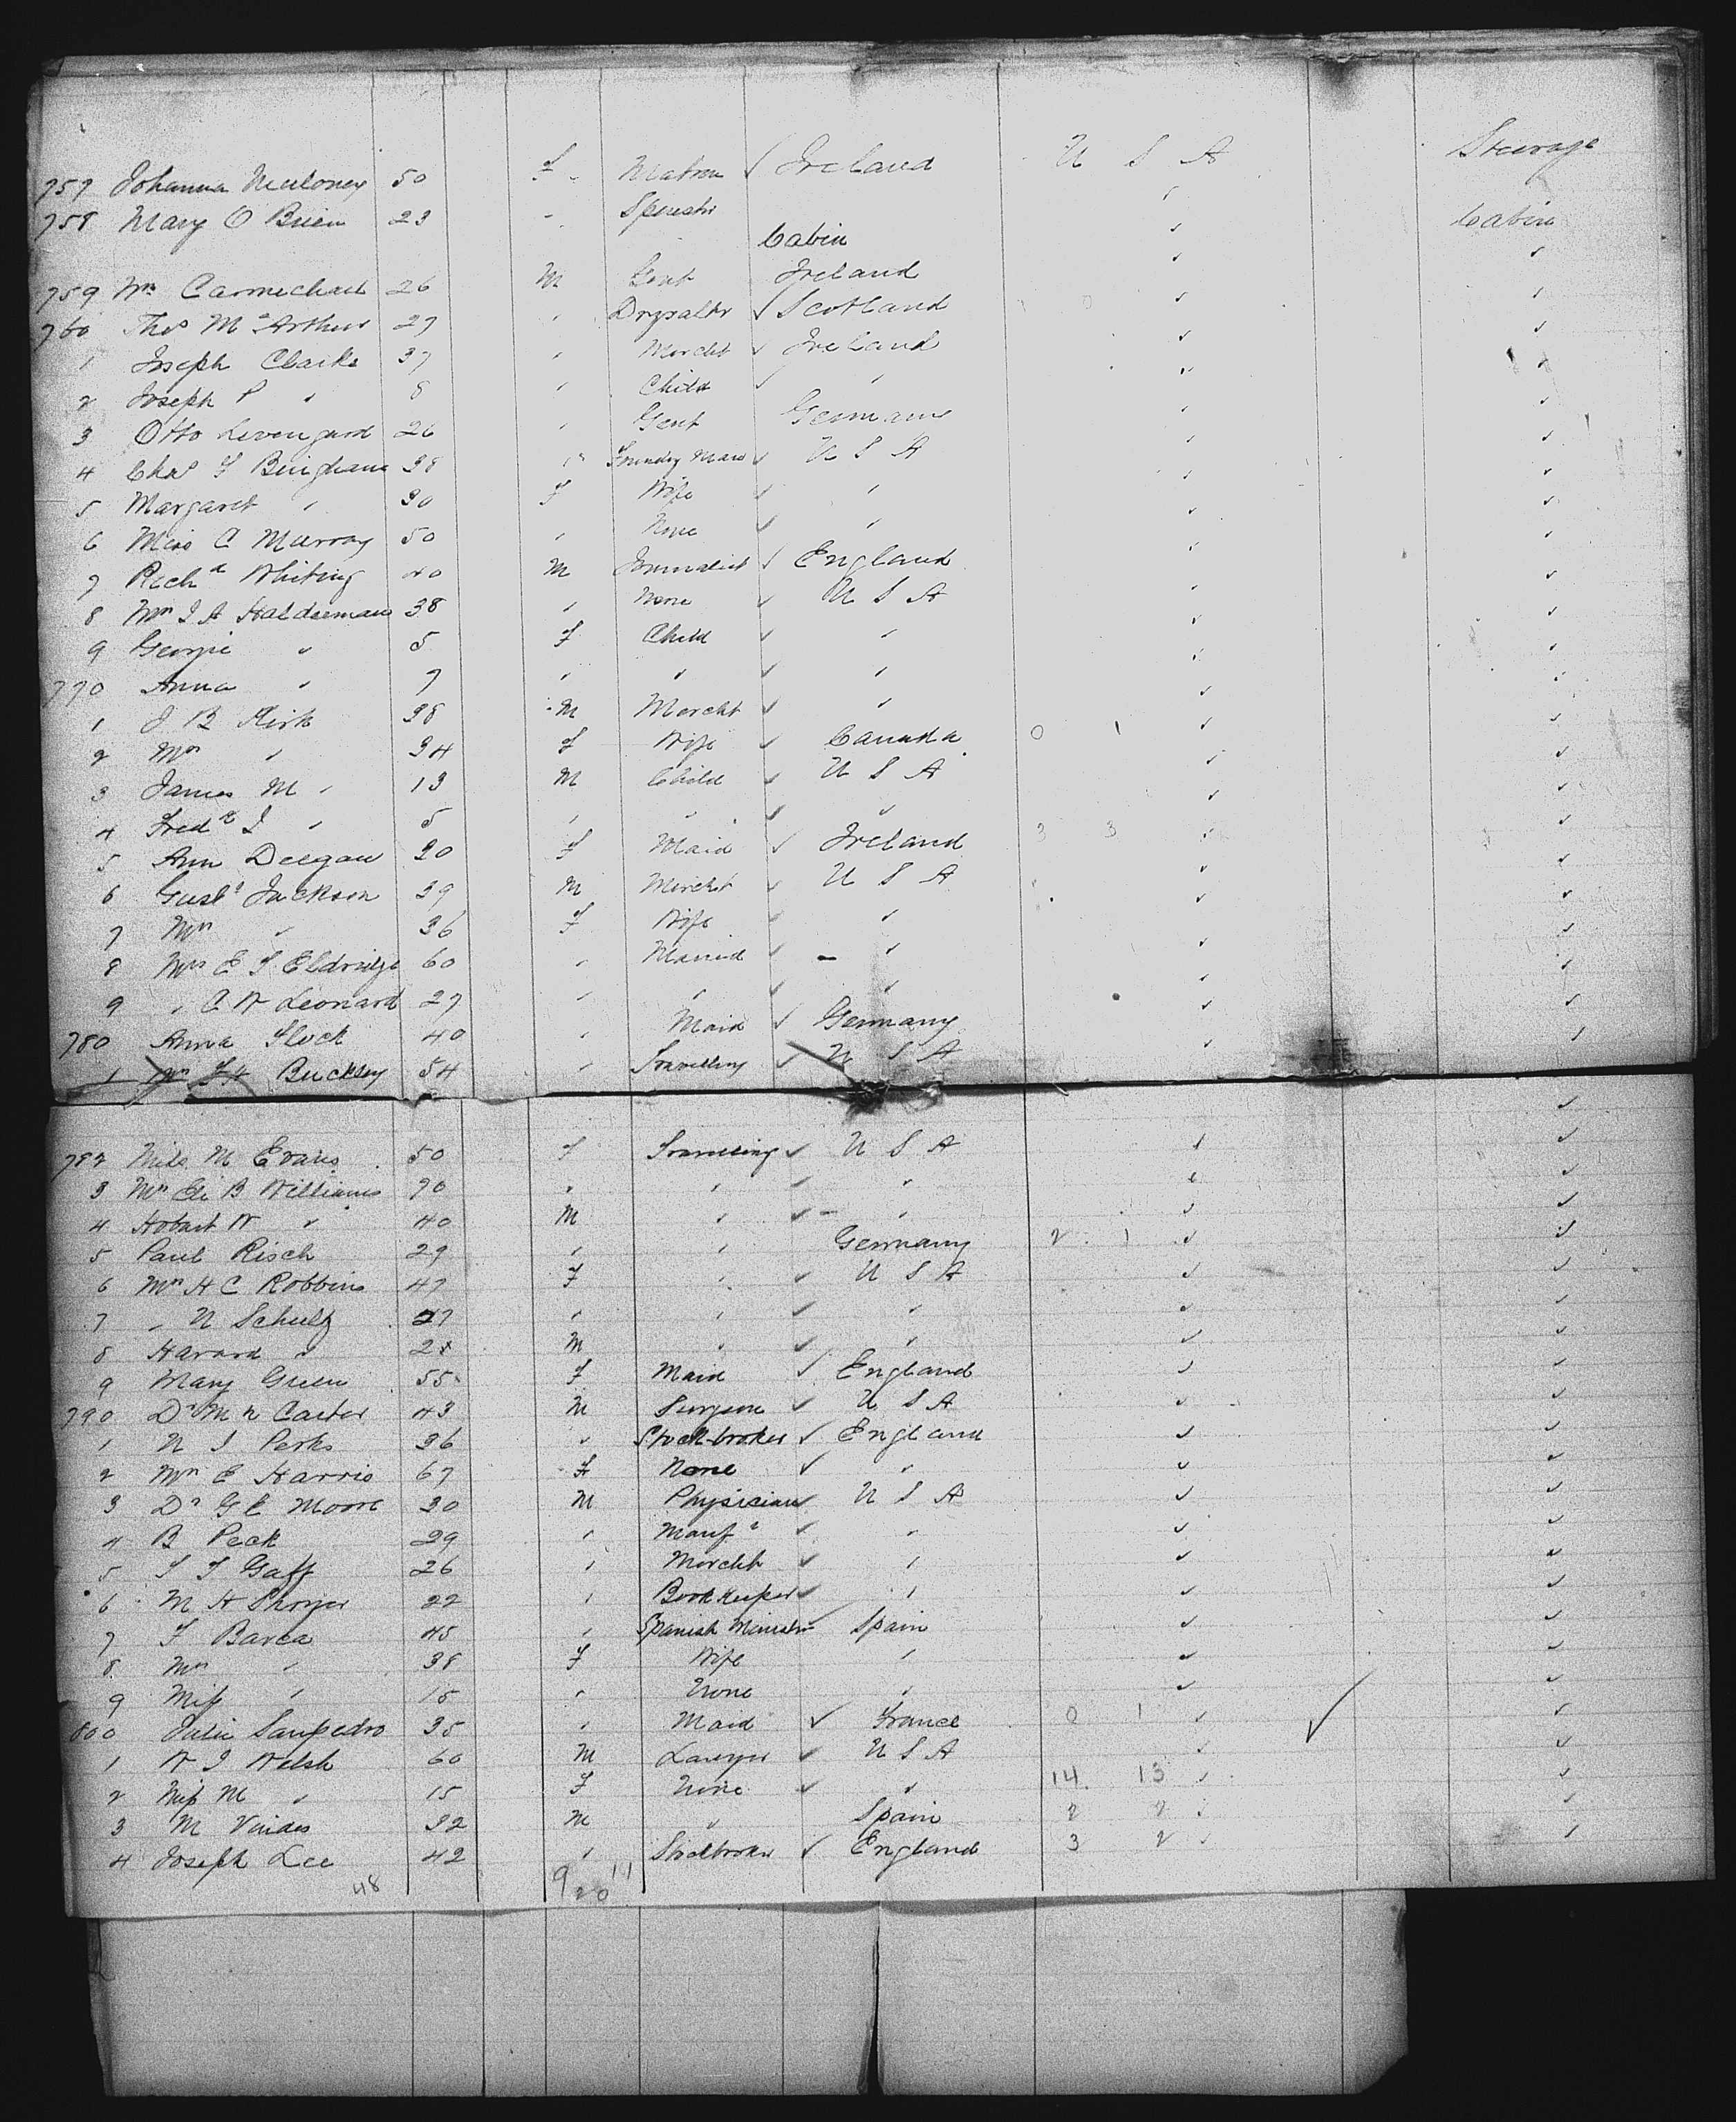 757 Johanna Muloney 50 F Matron Ireland U S A Steerage
758 Mary O Brien 23 " Spinstr ✓
Cabin ✓ Cabin
759 Wm Carmichael 26 M Gent Ireland ✓ ✓
760 Thos Mc Arthur 27 " Drysaltr ✓ Scotland ✓ ✓
1 Joseph Clarke 37 " Mercht ✓ Ireland ✓ ✓
2 Joseph P " 8 " Child ✓ " ✓ ✓
3 Otto Levengard 26 " Gent Germany ✓ ✓
4 Chas F Bingham 38 " Foundry Man ✓ U S A ✓ ✓
5 Margaret " 30 F Wife ✓ " ✓ ✓
6 Miss C Murray 50 " None ✓ " ✓ ✓
7 Richd Whiting 40 M Journalist ✓ England ✓ ✓
8 Mrs J A Haldeeman 38 " None ✓ U S A ✓ ✓
9 Georgie " 5 F Child ✓ " ✓ ✓
770 Anna " 7 " " ✓ " ✓ ✓
1 J B Kirk 38 M Mercht ✓ " ✓ ✓
2 Mrs " 34 F Wife ✓ Canada 0 1 ✓ ✓
3 James M " 13 M Child ✓ U S A ✓ ✓
4 Fredk J " 5 " " ✓ " ✓ ✓
5 Ann Deegan 20 F Maid ✓ Ireland 3 3 ✓ ✓
6 Gust Jackson 39 M Mercht ✓ U S A ✓ ✓
7 Mrs " 36 F Wife ✓ " ✓ ✓
8 Mrs E S Eldridge 60 " Married ✓ " ✓ ✓
9 " C W Leonard 27 " " ✓ " ✓ ✓
780 Anna Flock 40 " Maid ✓ Germany ✓ ✓
1 Buckley 54 " Travelling ✓ U S A ✓ ✓
782 Miss M Evans 50 F Travelling ✓ U S A ✓ ✓
3 Mrs Eli B Williams 70 " " ✓ " ✓ ✓
4 Hobart W " 40 M " ✓ " ✓ ✓
5 Paul Risch 29 " " Germany 2 1 ✓ ✓
6 Mrs H C Robbins 47 F " ✓ U S A ✓ ✓
7 " N Schultz 27 " " ✓ " ✓ ✓
8 Havard " M " ✓ " ✓ ✓
9 Mary Green 55 F Maid ✓ England ✓ ✓
790 Dr M n Carter 43 M Surgeon ✓ U S A ✓ ✓
1 N J Perks 36 " Stock-broker ✓ England ✓ ✓
2 Mrs E Harris 67 F None ✓ " ✓ ✓
3 Dr G E Moore 30 M Physician ✓ U S A ✓ ✓
4 B Peck 29 " Manfr ✓ " ✓ ✓
5 T T Gaff 26 " Mercht ✓ " ✓ ✓
6 M H 22 " Bookkeeper ✓ " ✓ ✓
7 F Barca 45 " Spanish Ministr ✓ Spain ✓ ✓
8 Mrs " 38 F Wife " ✓ ✓
9 Miss " 15 " None " ✓ ✓
800 Julie Sanpedro 35 " Maid ✓ France 0 1 ✓ ✓
1 W J Welsh 60 M Lawyer ✓ U S A ✓ ✓
2 Miss M " 15 F None ✓ " 14 13 ✓ ✓
3 M Vindas 32 M " Spain 2 2 ✓ ✓
4 Joseph Lee 42 " Stockbroker ✓ England 3 2 ✓ ✓
48 9 11
20